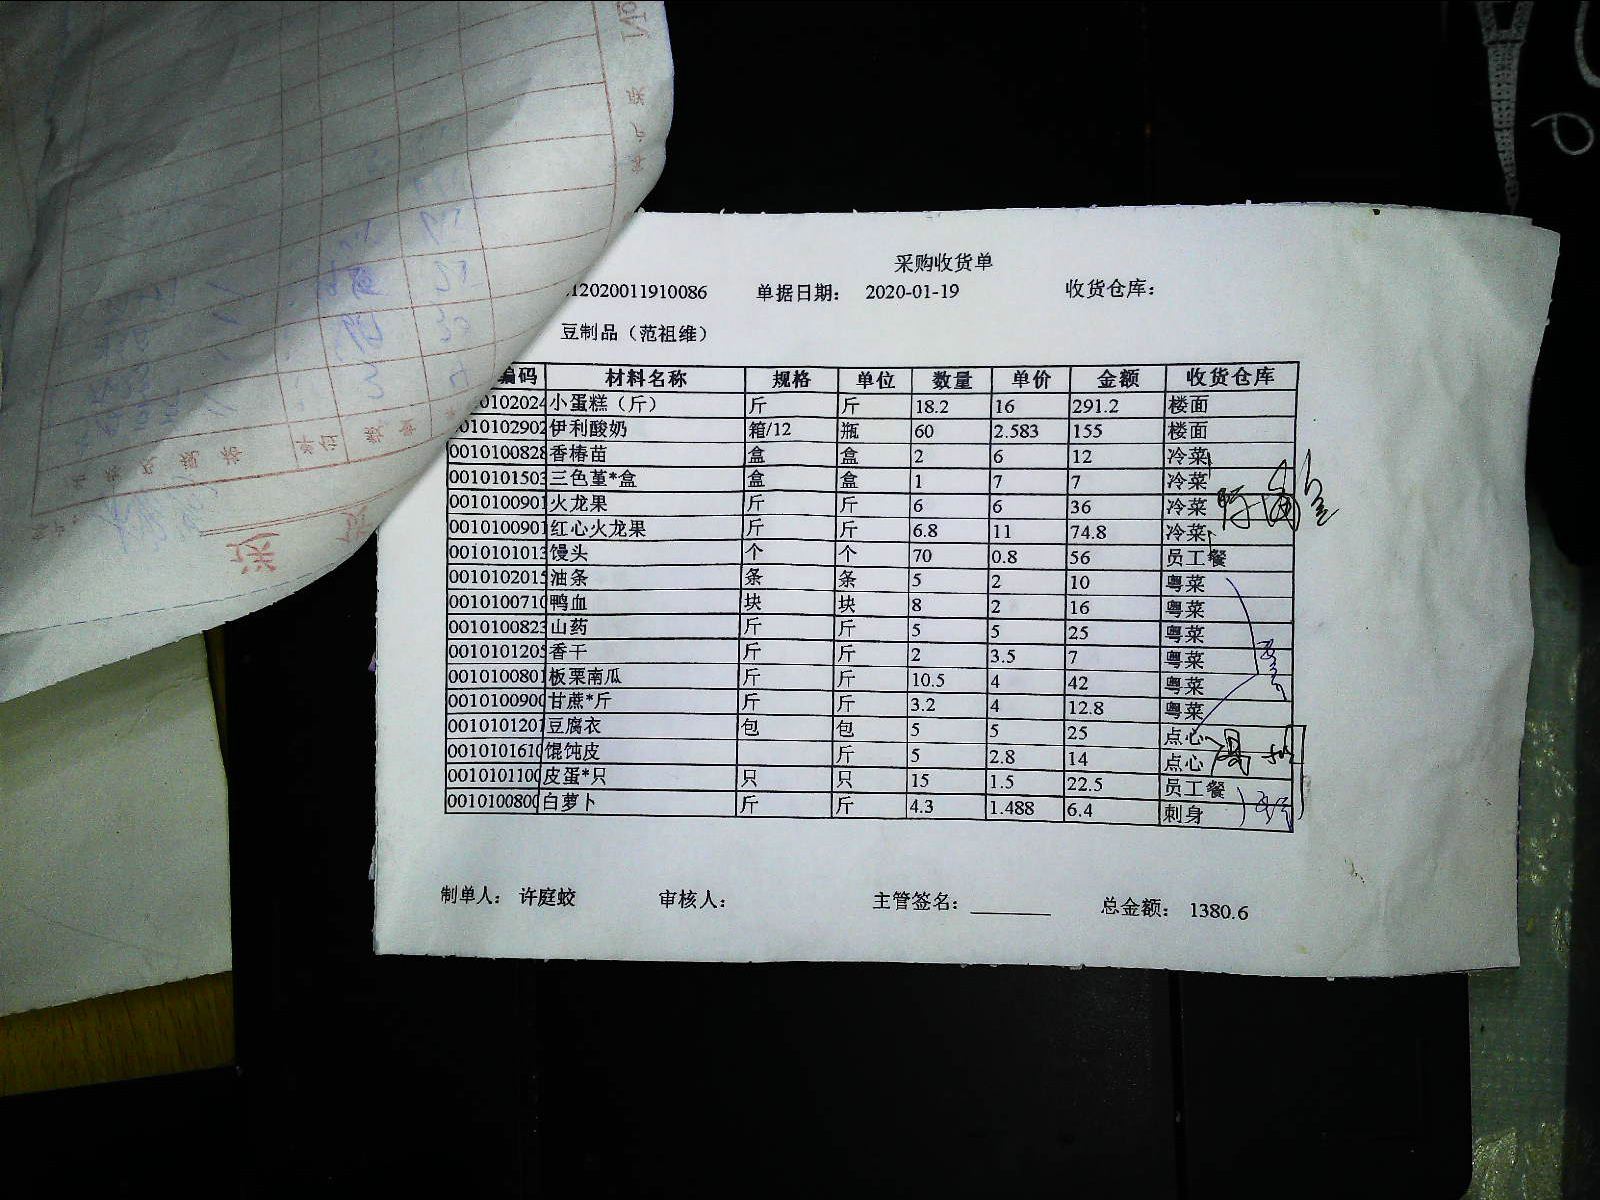 采购收货单
12020011910086 单据日期： 2020-01-19 收货仓库：
豆制品（范祖维）
编码 材料名称 规格 单位 数量 单价 金额 收货仓库
010202 小蛋糕（斤） 斤 斤 18.2 16 291.2 楼面
010102902 伊利酸奶 箱/12 瓶 60 2.583 155 楼面
0010100828 香椿苗 盒 盒 2 6 12 冷菜
0010101503 三色堇*盒 盒 盒 1 7 7 冷菜
0010100901 火龙果 斤 斤 6 6 36 冷菜
0010100901 红心火龙果 斤 斤 6.8 11 74.8 冷菜
0010101013 馒头 个 个 70 0.8 56 员工餐
0010102015 油条 条 条 5 2 10 粤菜
0010100710 鸭血 块 块 8 2 16 粤菜
0010100823 山药 斤 斤 5 5 25 粤菜
0010101205 香干 斤 斤 2 3.5 7 粤菜
0010100801 板栗南瓜 斤 斤 10.5 4 42 粤菜
0010100900 甘蔗*斤 斤 斤 3.2 4 12.8 粤菜
0010101201 豆腐衣 包 包 5 5 25 点心
0010101610 馄饨皮 斤 5 2.8 14 点心
0010101100 皮蛋*只 只 只 15 1.5 22.5 员工餐
0010100800 白萝卜 斤 斤 4.3 1.488 6.4 刺身
制单人： 许庭蛟 审核人： 主管签名： 总金额： 1380.6